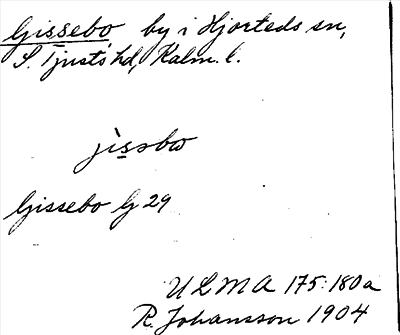 Gissebo by i Hjorteds sn,
S. Tjusts hd, Kalm. l.
jìsəbω
Gissebo G 29
ULMA 175:180a
R. Johansson 1904